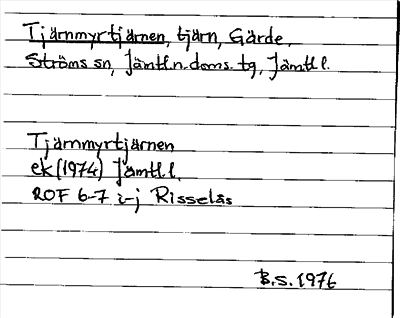 Tjärnmyrtjärnen, tjärn, Gärde,
Ströms sn, Jämtl.n.doms.tg, Jämtl l.
Tjärnmyrtjärnen
ek (1974) Jämtl.l.
ROF 6-7 i-j Risselås
B.S. 1976